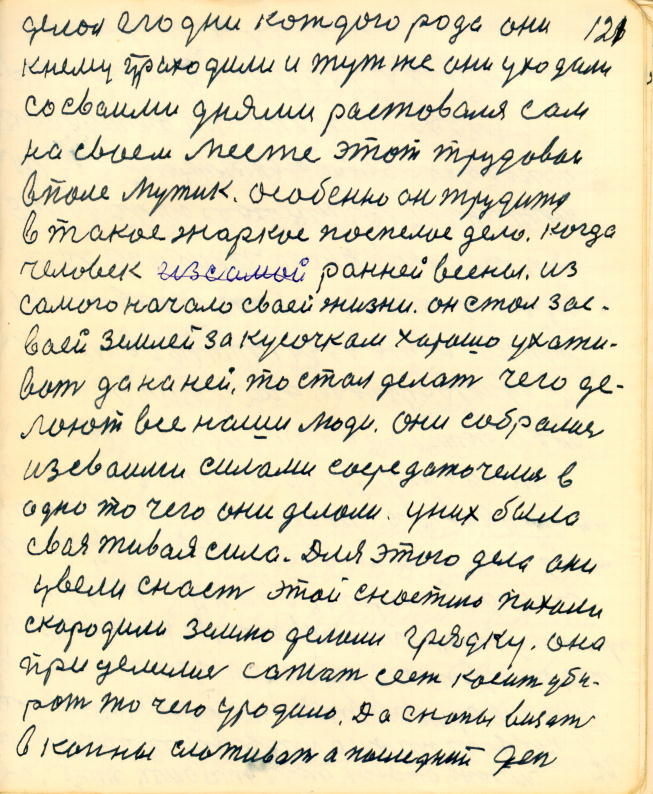 делоя его дни котдого рода они 121
кнему приходили и тутже они уходили
сосваими днями растоваля сам
на своем месте этот трудовои
вполе мутик. особенно он трудитя
в такое жаркое поспелое дело. когда
человек изсамой ранней весены. из
самого начало сваей жизни. он стол зас-
ваей землей за кусочкам харашо ухати-
вать да на ней. то стал делать чего де-
лоют все наши люди. они собралися
из сваими силами сосредаточелися в
одно то чего они делоли. уних было
сваятивая сила. Для этого дела они
цвели снаст этой сностию пахоли
скародили землю делоли грядку. она
при делилися сатат сеет косит уби-
рот то чего уродило. Да снопы визат
в копны слотиват а последний ден